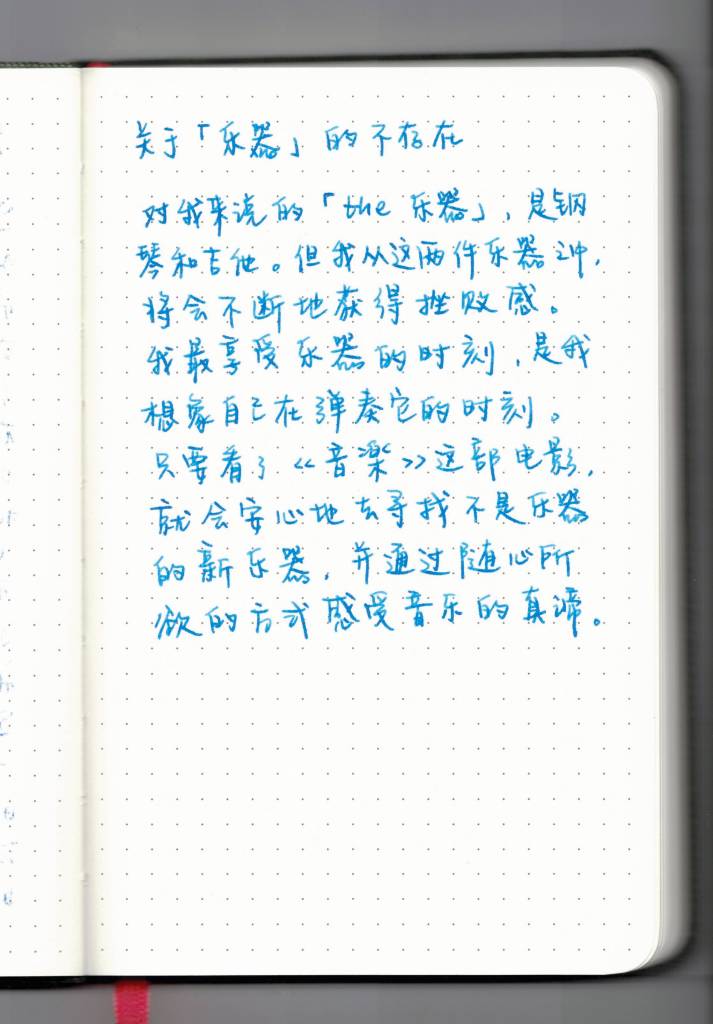 关于「乐器」的不存在
对我来说的「the 乐器」，是钢
琴和吉他。但我从这两件乐器之中，
将会不断地获得挫败感。
我最享受乐器的时刻，是我
想象自己在弹奏它的时刻。
只要看了《音楽》这部电影，
就会安心地去寻找不是乐器
的新乐器，并通过随心所
欲的方式感受音乐的真谛。